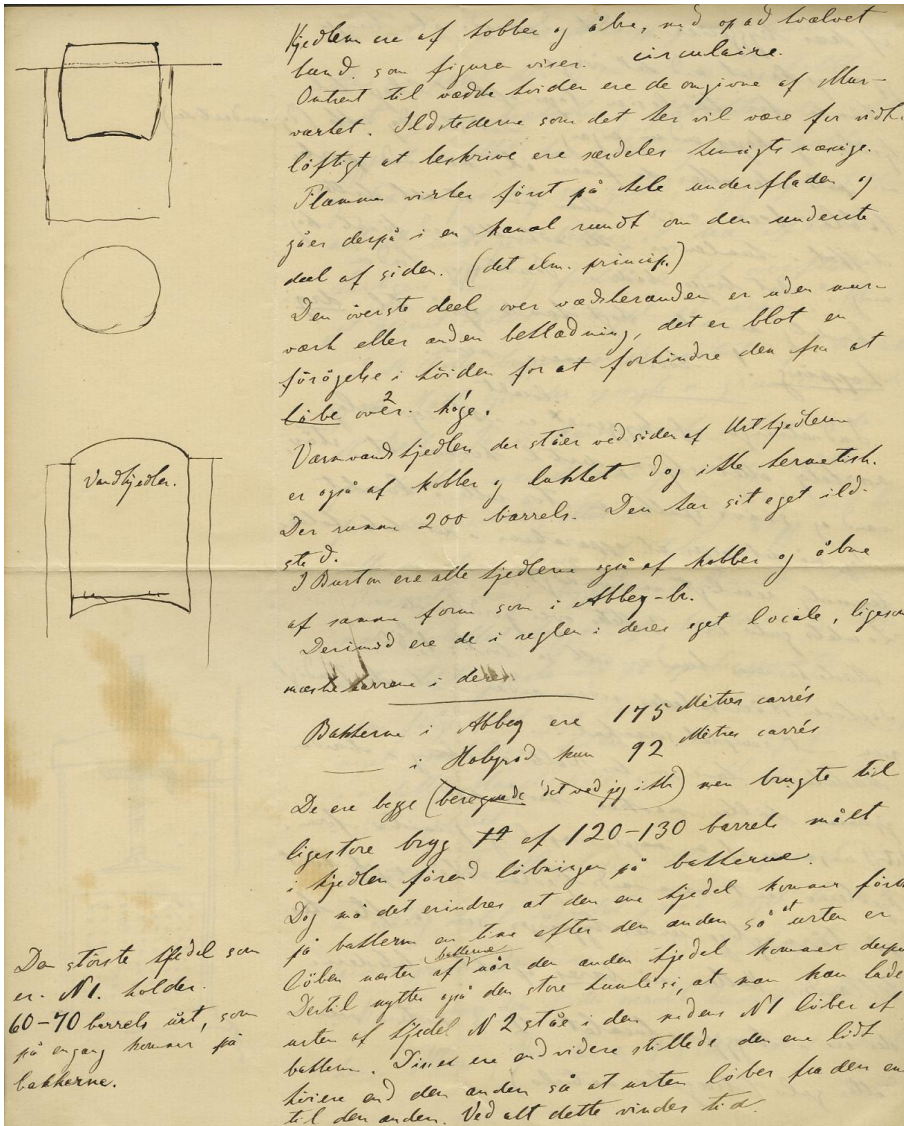 Kjedlerne ere af kobber og åbne, med opad hvælvet
bund, som figuren viser. circulaire.
Omtrent til vædskehøiden ere de omgivne af Mur-
værket. Ildstederne som det her vil være for vidt-
løftigt at beskrive ere særdeles hensigtsmæssige.
Flammen virker først på hele underfladen og
gåer derpå i en kanal rundt om den underste
deel af siden. (det alm. princip.)
Den överste deel over vædskeranden er uden mur-
værk eller anden beklædning, det er blot en
forögelse i höiden for at forhindre den fra at
löbe over. 2 höge.
Varmvandskjedlen der ståer ved siden af Urtkjedlerne
er også af kobber og lukket dog ikke hermetisk.
Der rummer 200 barrels. Den har sit eget ild-
sted.
I Burton ere alle kjedlerne også af kobber og åbne
af samme form som i Abbey-br.
Derimod ere de i reglen i deres eget locale, ligesom
mæskekarrene i deres
Bakkerne i Abbey ere 175 Mètres carrés
i Holyrod kun 92 Mètres carrés
De ere begge (beregnede det ved jeg ikke) men brugte til
ligestore bryg af 120–130 barrels målt
i kjedlen förend löbningen på bakkerne.
Dog må det erindres at den ene kjedel kommer först
på bakkerne en time efter den anden så at urten er
löben næsten af bakkerne når den anden kjedel kommer derpå
Dertil nyttes også den store humlesi, at man kan lade
urten af kjedel N 2 ståe i den medens N1 löber af
bakkerne. Disse ere endvidere stillede den ene lidt
höiere end den anden så at urten löber fra den ene
til den anden. Ved alt dette vindes tid.
Vandkjedler.
Den störste kjedel som
er N1. holder
60–70 barrels urt, som
på engang kommer på
bakkerne.